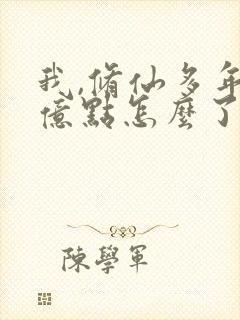 我,脩仙多年強
億點怎麼了
陳學軍